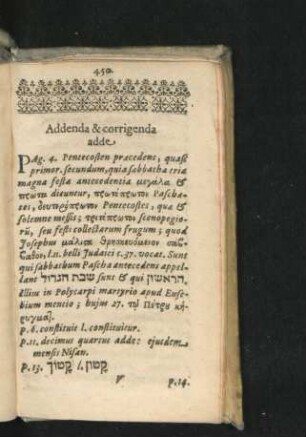 450.
Addenda & corrigenda
adde
PAg. 4. Pentecosten præcedens, quasi
primor. secundum, quia sabbatha tria
magna festa antecedentia μεγάλα &
πρῶτα dicuntur, Pascha-
tes, Pentecostes, qua &
solemne messis; scenopegio-
rū, seu festi collectarum frugum; quod
Josephus μάλιστα θρησκευόμενον
l. 2. belli Judaici c. 37. vocat. Sunt
qui sabbathum Pascha antecedens appel-
lant שבת הגדול sunt & qui הראשון.
Illius in Polycarpi martyrio apud Euse-
bium mentio; hujus 27. τῷ Πέτρου κη-
ρυγματι.
p. 6. constituit l. constituitur.
p. 11. decimus quartus adde: ejusdem
mensis Nisan.
p. 13. l.
V p. 14.